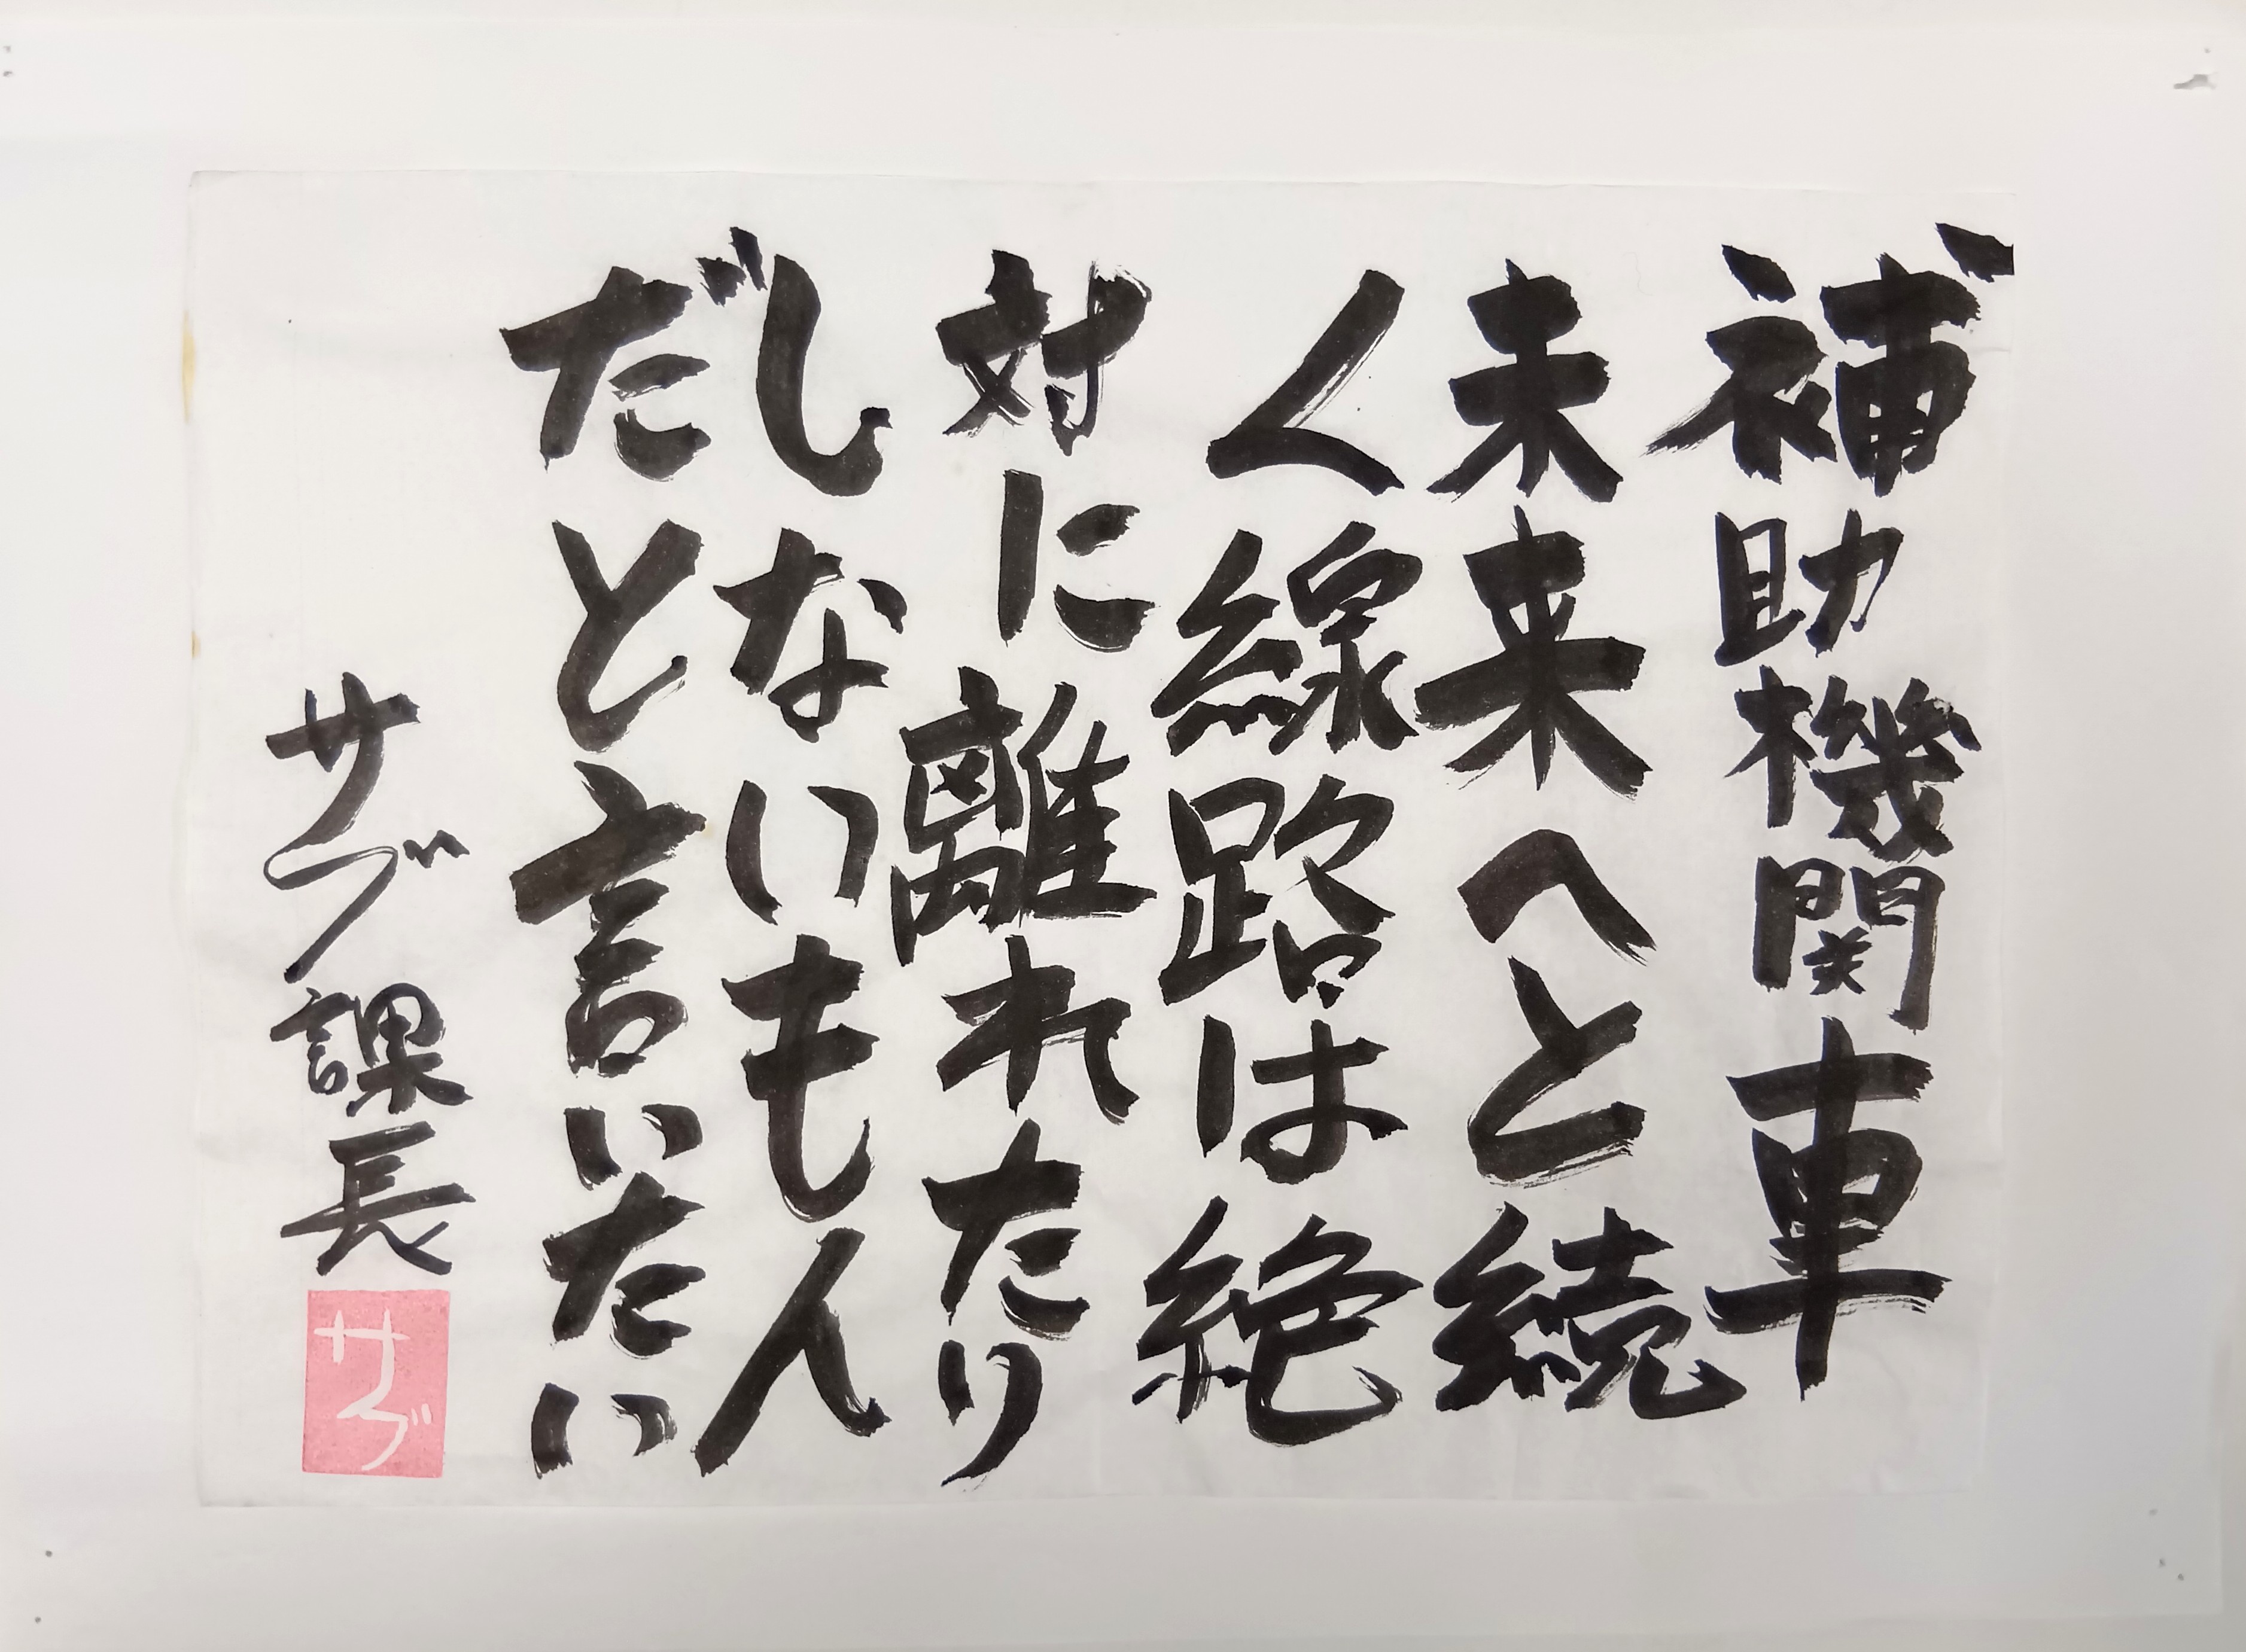 補助機関車
未来へと続
く線路は絶
対に離れたり
しないもん
だと言いたい
サブ課長
サブ